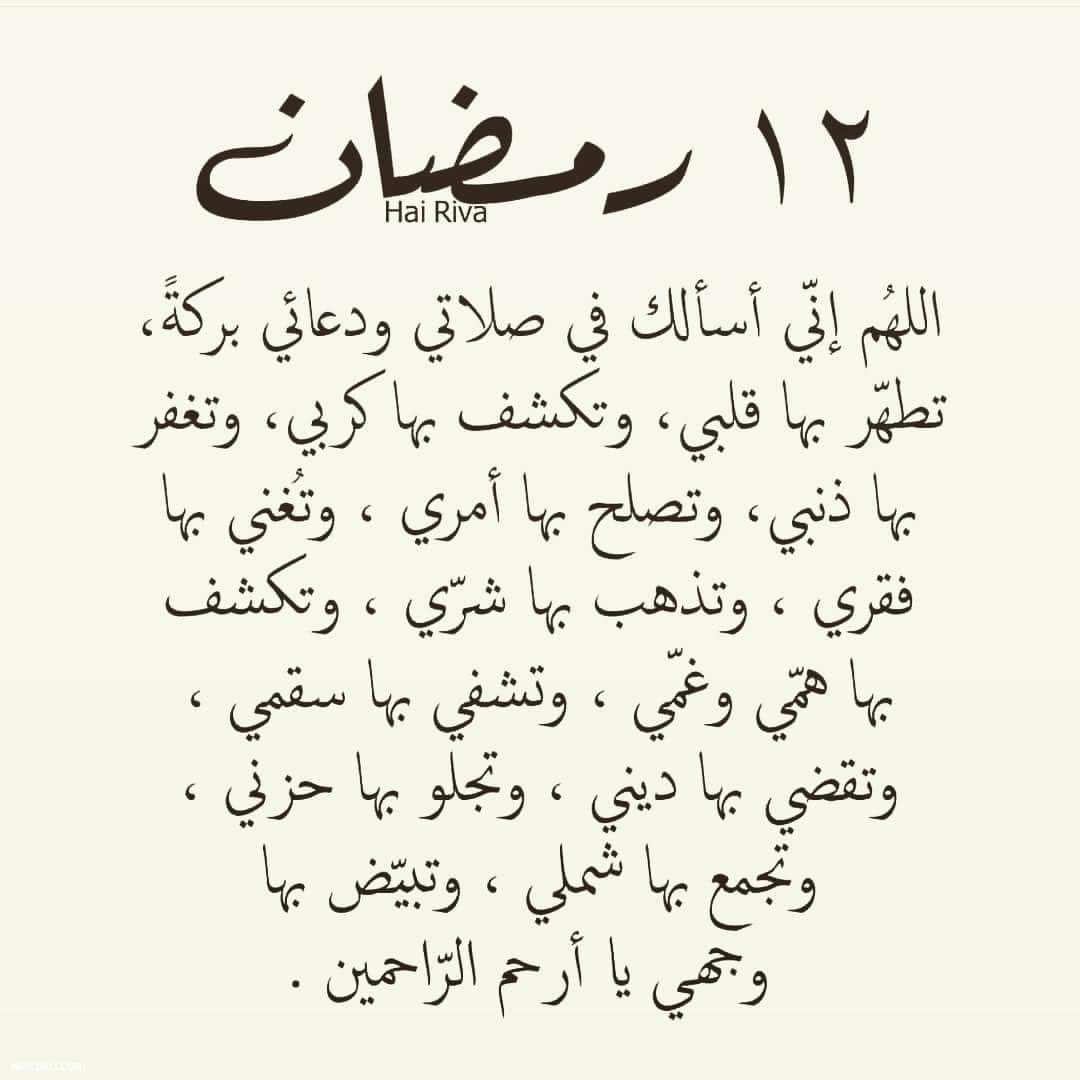 ١٢ رمضان
Hai Riva
اللهُم إنّي أسألك في صلاتي ودعائي بركةً،
تطهّر بها قلبي، وتكشف بها كربي، وتغفر
بها ذنبي، وتصلح بها أمري ، وتُغني بها
فقري ، وتذهب بها شرّي ، وتكشف
بها همّي وغمّي ، وتشفي بها سقمي ،
وتقضي بها ديني ، وتجلو بها حزني ،
وتجمع بها شملي ، وتبيّض بها
وجهي يا أرحم الرّاحمين .